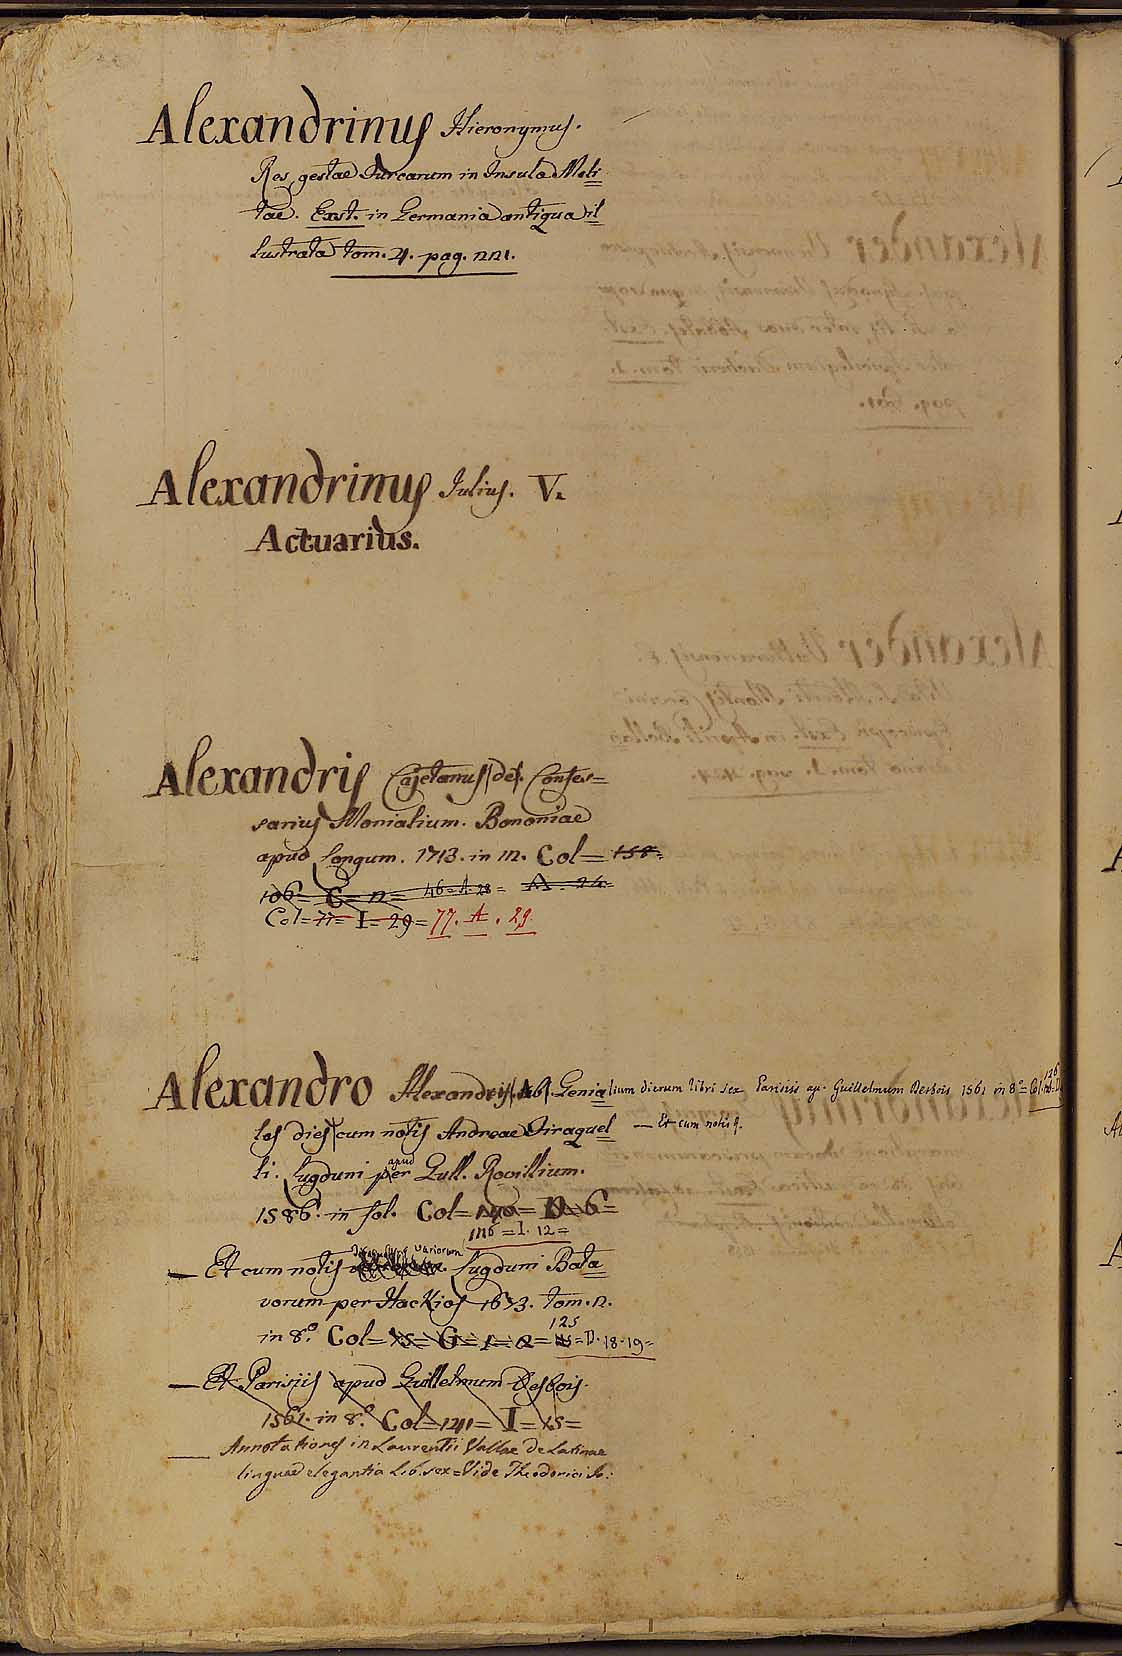 Alexandrinus Hieronymus.
Res gestae Turcarum in Insula Meli
tae. Exst. in Germania antiqua il
lustrata tom. 2. pag. 221.
Alexandrinus Julius. V.
Actuarius.
Alexandris Cajetanus de. Confes=
sarius Monialium. Bononiae
apud Longum. 1713. in 12. Col= 158=
106= C= 12= 46= A. 28= A. 24=
Col= 77= I= 29= 77. A. 29.
Alexandro Alexandris Ab. Genialium dierum libri sex Parisiis ap. Guillelmum Desbois 1561 in 8º= Col. 126
los dies cum notis Andreae Tiraquel — Et cum notis q.
li. Lugduni apud per Gull. Rovillium.
1586. in fol. Col= D. 6=
126=I. 12=
— Et cum notis variorum Lugduni Bata
vorum per Hackios 1673. tom. 2.
in 8º. Col= 15= G= 1= 2= 125 =D. 18-19=
— Et Parisiis apud Guillelmum Desbois.
1561. in 8º Col= 141= I= 15=
— Annotationes in Laurentii Vallae de Latinae
linguae elegantia Lib. sex= Vide Theodorici